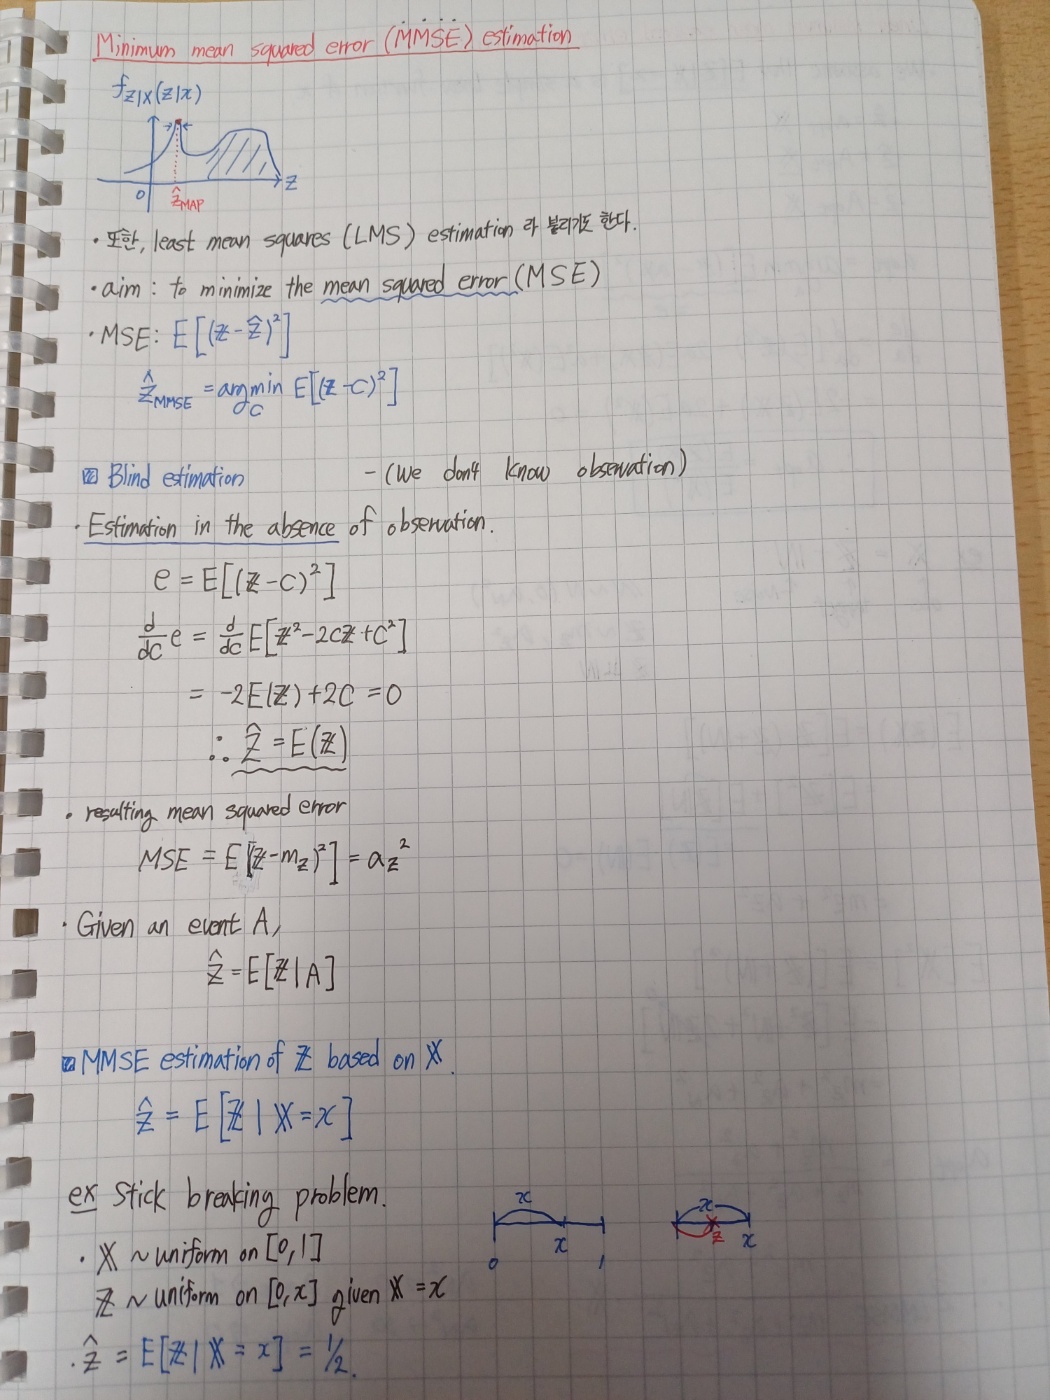 Minimum mean squared error (MMSE) estimation
f_{Z|X}(z|x)
0 ẑ_MAP z
· 또한, least mean squares (LMS) estimation 라 불리기도 한다.
· aim : to minimize the mean squared error (MSE)
· MSE: E[(Z-Ẑ)²]
ẑ_MMSE = argmin_C E[(Z-C)²]
Blind estimation - (We don't know observation)
· Estimation in the absence of observation.
e = E[(Z-C)²]
d/dc e = d/dc E[Z²-2CZ+C²]
= -2E(Z)+2C = 0
∴ ẑ = E(Z)
· resulting mean squared error
MSE = E[(Z-m_z)²] = a_z²
· Given an event A,
ẑ = E[Z|A]
MMSE estimation of Z based on X.
ẑ = E[Z | X = x]
ex stick breaking problem.
x x
0 x 1 z x
· X ~ uniform on [0,1]
Z ~ uniform on [0,x] given X = x
· ẑ = E[Z | X = x] = 1/2.